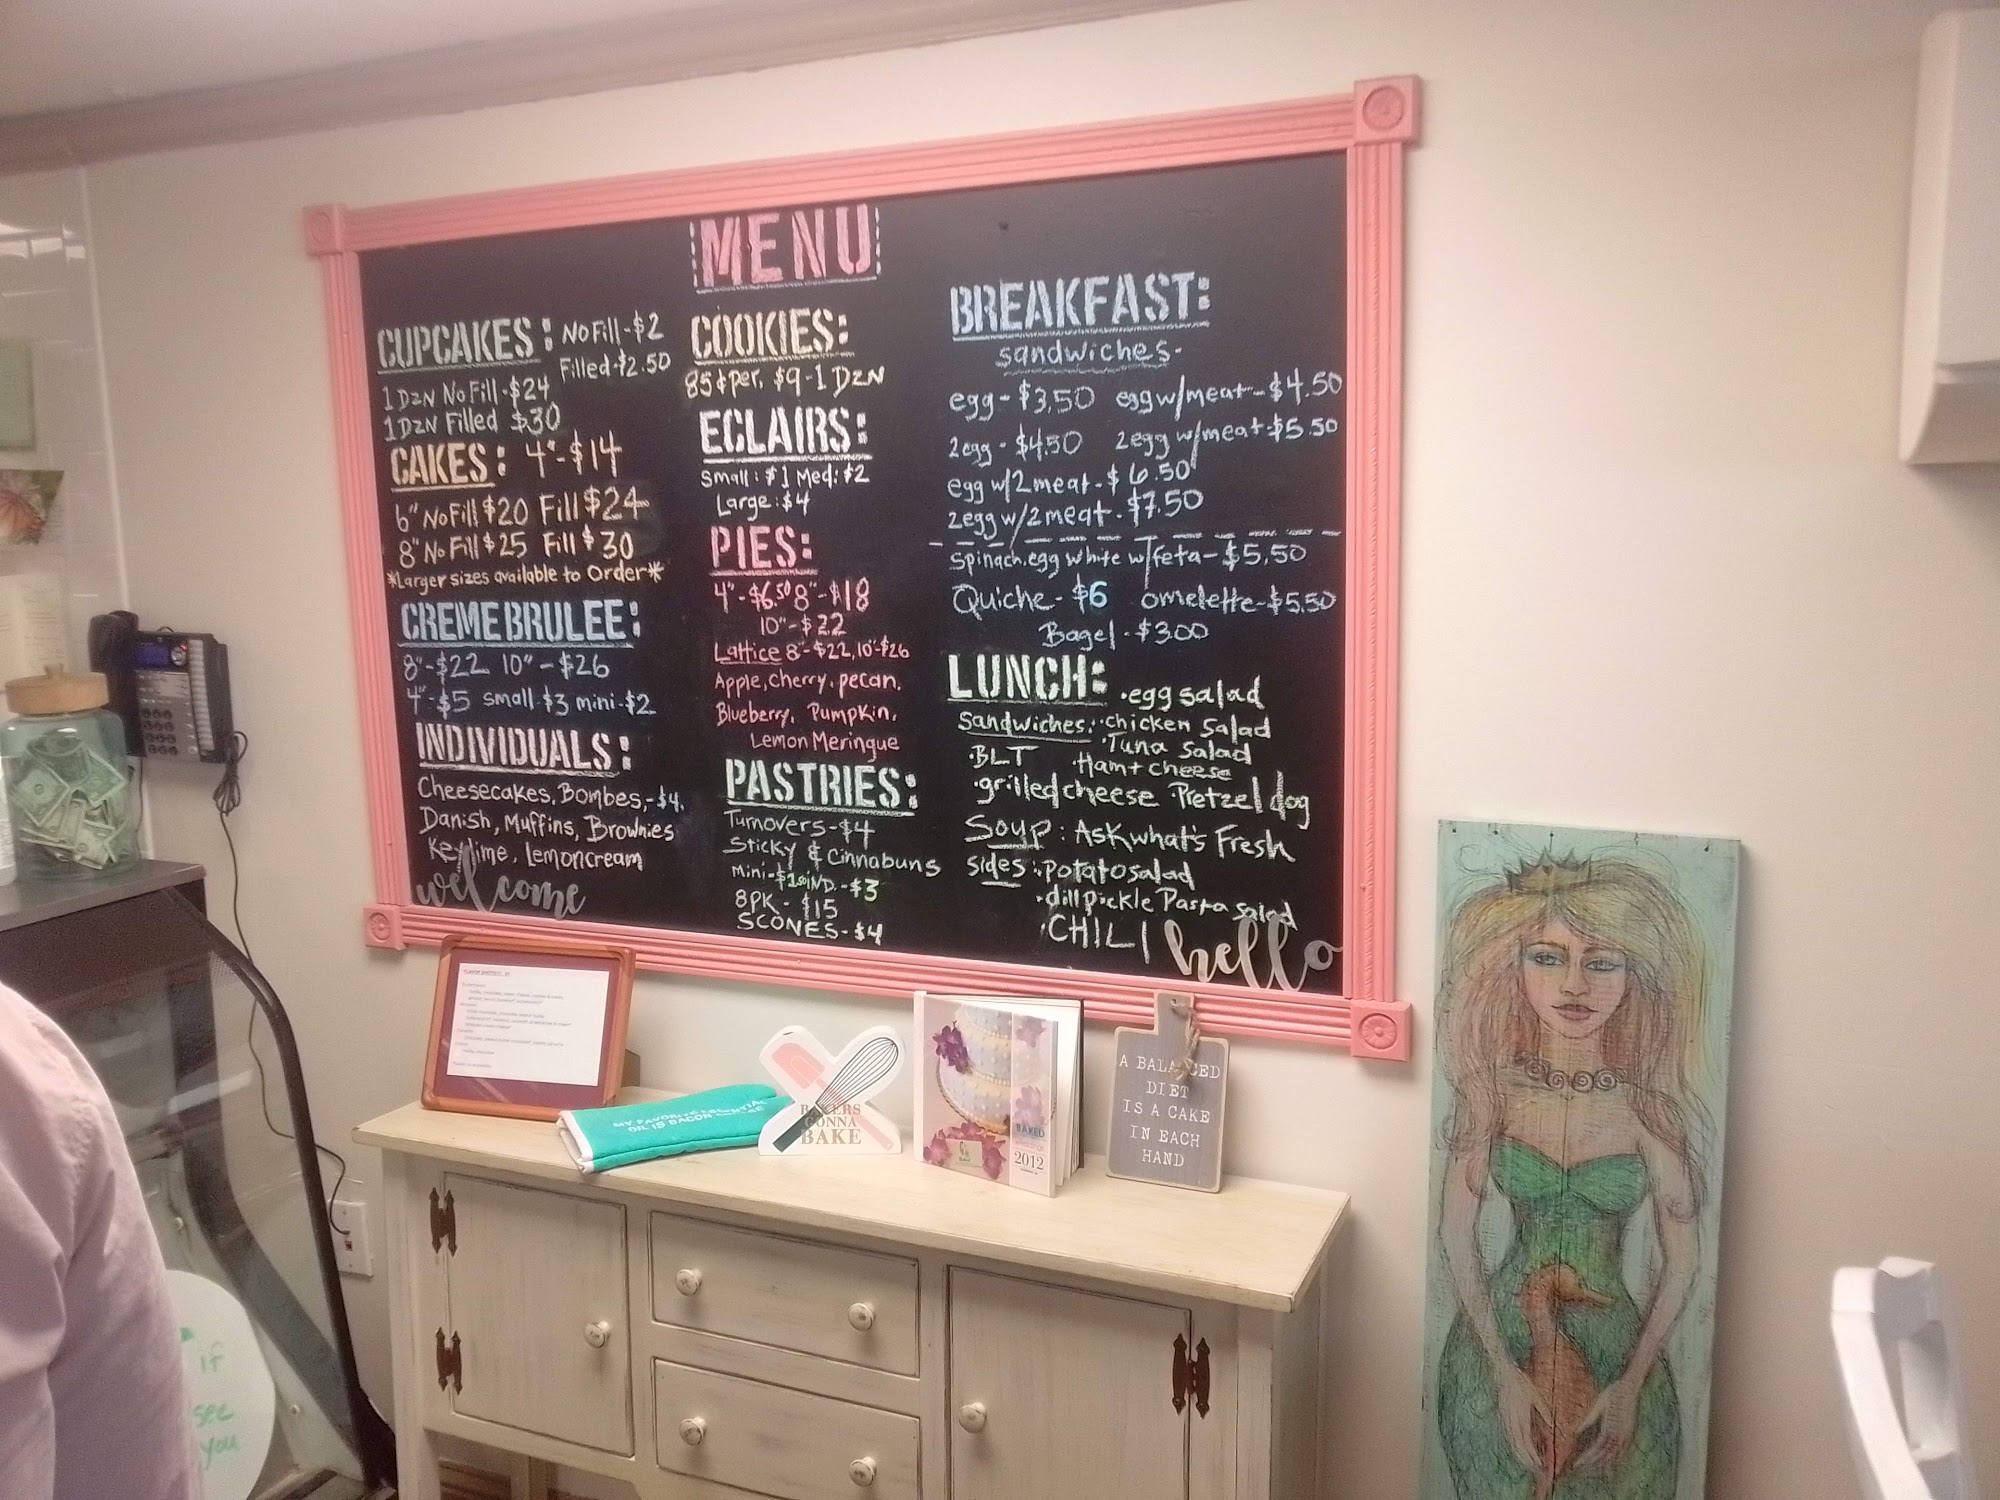 MENU
CUPCAKES: No Fill-$2
Filled-$2.50
1 Dzn No Fill-$24
1 Dzn Filled $30
CAKES: 4"-$14
6" No Fill $20 Fill $24
8" No Fill $25 Fill $30
*Larger sizes available to Order*
CREME BRULEE:
8"-$22 10"-$26
4"-$5 small-$3 mini-$2
INDIVIDUALS:
Cheesecakes, Bombes,-$4.
Danish, Muffins, Brownies
Keylime, Lemoncream
welcome
COOKIES:
85¢ per, $9-1 Dzn
ECLAIRS:
Small:$1 Med:$2
Large:$4
PIES:
4"-$6.50 8"-$18
10"-$22
Lattice 8"-$22, 10"-$26
Apple, cherry, pecan,
Blueberry, Pumpkin,
Lemon Meringue
PASTRIES:
Turnovers-$4
Sticky & Cinnabuns
Mini-$1.50 IND.-$3
8PK-$15
SCONES-$4
BREAKFAST:
sandwiches-
egg-$3.50 egg w/meat-$4.50
2egg-$4.50 2egg w/meat-$5.50
egg w/2meat-$6.50
2egg w/2meat-$7.50
Spinach.egg white w/feta-$5.50
Quiche-$6 omelette-$5.50
Bagel-$3.00
LUNCH: •egg salad
Sandwiches: •chicken salad
•Tuna salad
•BLT •Ham+cheese
•grilled cheese •Pretzel dog
Soup: Ask what's Fresh
sides: •potato salad
•dill pickle Pasta salad
•CHILI
hello
MY FAVORITE ESSENTIAL
OIL IS BACON
BAKERS
GONNA
BAKE
BAKED
2012
A BALANCED
DIET
IS A CAKE
IN EACH
HAND
if
see
you